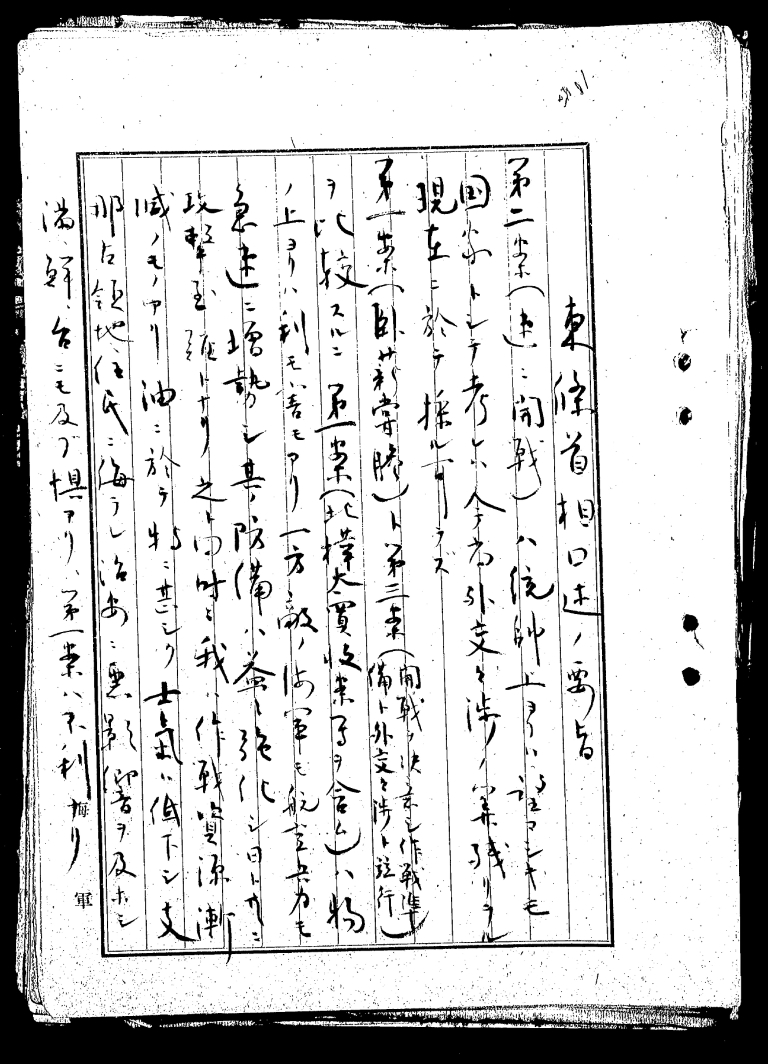 東條首相口述ノ要旨
第二案(速ニ開戦)ハ統帥上ヨリハ望マシキモ
国家トシテ考レハ今尚外交々渉ノ余地残リヲル
現在ニ於テ採ルヲ可ラズ
第一案(臥薪嘗膽)ト第三案(開戦ヲ決意シ作戦準
備ト外交々渉ト竝行)
ヲ比較スルニ第一案(北樺太買收案等ヲ含ム)ハ物
ノ上ヨリハ利モ害モアリ一方敵ノ海軍モ航空兵力モ
急速ニ増勢シ其ノ防備ハ益々強化シ日ト共ニ
攻撃至難トナリ之ト同時ニ我ハ作戦資源漸
減ノモノアリ油ニ於テ特ニ甚シク士氣ハ低下シ支
那占領地住民ニ侮ラレ治安ニ悪影響ヲ及ホシ
満、鮮、台ニモ及ブ惧アリ、第一案ハ不利ナリ
海軍